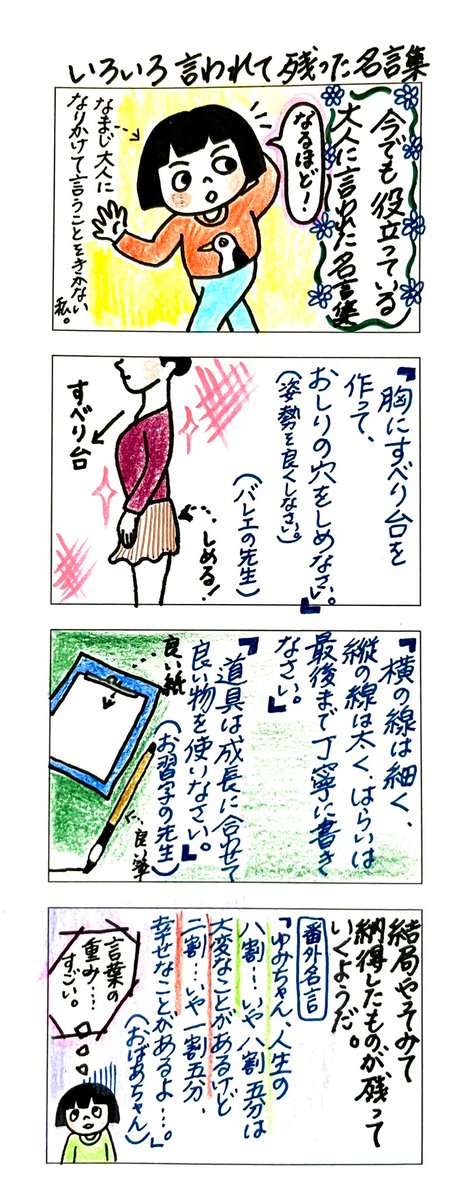 いろいろ言われて残った名言集
今でも役立っている
大人に言われた名言集
なるほど！
なまじ大人に
なりかけて言うことをきかない
私。
『胸にすべり台を
作って、
おしりの穴をしめなさい。』
（姿勢を良くしなさい。）
（バレエの先生）
すべり台
しめる！
『横の線は細く、
縦の線は太く、はらいは
最後まで丁寧に書き
なさい。』
『道具は成長に合せて
良い物を使いなさい。』
（お習字の先生）
良い紙
良い筆
結局やってみて
納得したものが、残って
いくようだ。
番外名言
『ゆみちゃん、人生の
八割…いや八割五分は
大変なことがあるけど
二割…いや一割五分、
幸せなことがあるよ…。』
（おばあちゃん）
言葉の
重み…
すごい。